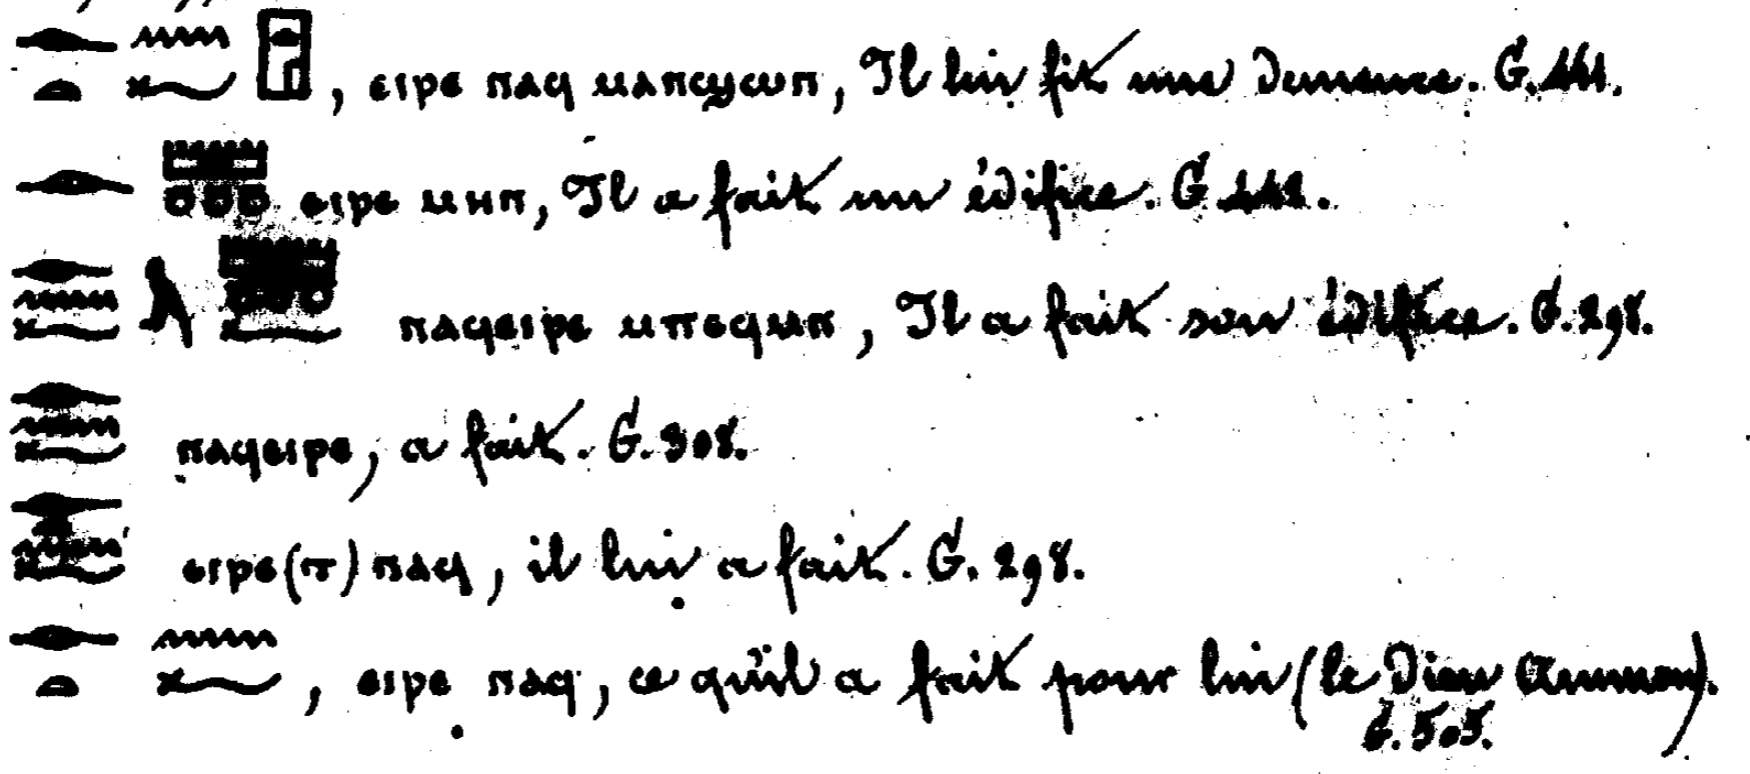 𓁹𓏏𓈖𓆑𓉗, ⲉⲓⲣⲉ ⲛⲁϥ ⲙⲁⲛϣⲱⲡ, Il lui fit une demeure. G.
𓁹𓏠𓏌𓏌𓏌 ⲉⲓⲣⲉ ⲙⲏⲛ, Il a fait un édifice. G.
𓁹𓈖𓆑 𓏠𓏌𓏌𓏌𓆑 ⲛⲁϥⲉⲓⲣⲉ ⲙⲡⲉϥⲙⲛ, Il a fait son édifice. G. 298.
𓁹𓈖𓆑 ⲛⲁϥⲉⲓⲣⲉ, a fait. G. 308.
𓁹𓏏𓈖𓆑 ⲉⲓⲣⲉ(ⲧ) ⲛⲁϥ, il lui a fait. G. 298.
𓁹𓏏𓈖𓆑, ⲉⲓⲣⲉ ⲛⲁϥ, ce qu'il a fait pour lui (le Dieu Ammon).
G. 505.